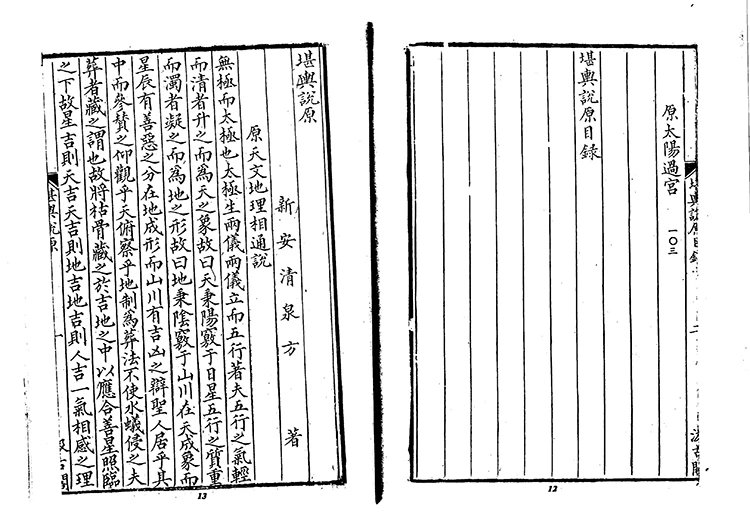 原太陽過宮 一〇三
堪輿說原目錄
12
堪輿說原
新安清泉方 著
原天文地理相通說
無極而太極也太極生兩儀兩儀立而五行著夫五行之氣輕
而清者升之而為天之象故曰天秉陽竅于日星五行之質重
而濁者凝之而為地之形故曰地秉陰竅于山川在天成象而
星辰有善惡之分在地成形而山川有吉凶之辯聖人居乎其
中而參賛之仰觀乎天俯察乎地制為葬法不使水蟻侵之夫
葬者藏之謂也故將枯骨藏之於吉地之中以應合善星照臨
之下故星吉則天吉天吉則地吉地吉則人吉一氣相感之理
堪輿說原 一
13